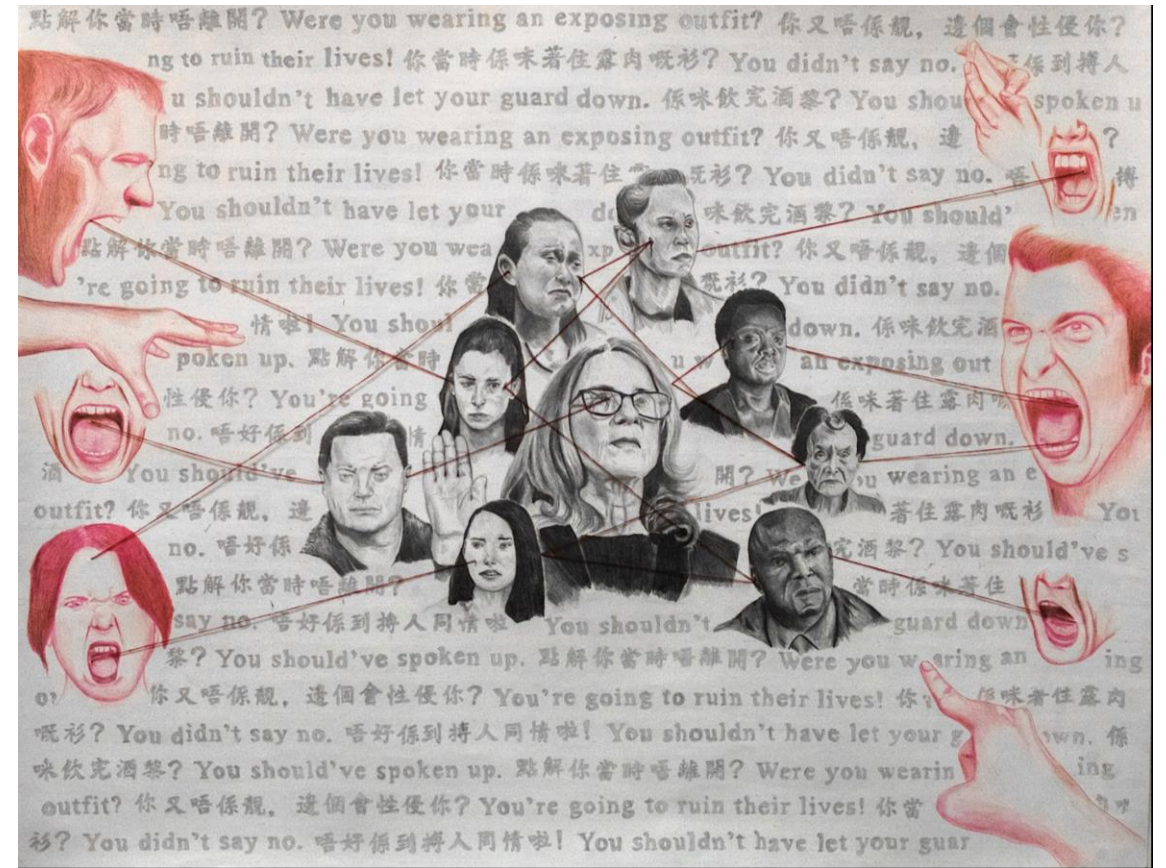 點解你當時唔離開? Were you wearing an exposing outfit? 你又唔係靚, 邊個會性侵你?
ng to ruin their lives! 你當時係咪著住露肉嘅衫? You didn't say no. 係到搏人
u shouldn't have let your guard down. 係咪飲完酒黎? You shou spoken u
時唔離開? Were you wearing an exposing outfit? 你又唔係靚, 邊 ?
ng to ruin their lives! 你當時係咪著住 嘅衫? You didn't say no. 唔 搏
You shouldn't have let your do 咪飲完酒黎? You should' en
點解你當時唔離開? Were you wea xp outfit? 你又唔係靚, 邊個
're going to ruin their lives! 你當 嘅衫? You didn't say no.
情啦! You shoul down. 係咪飲完酒
poken up. 點解你當時 u w an exposing out
性侵你? You're going 係咪著住露肉嘅
no. 唔好係到 情 guard down.
酒 You should've 開? We u wearing an e
outfit? 你又唔係靚, 邊 lives! 著住露肉嘅衫 You
no. 唔好係 完酒黎? You should've s
點解你當時唔離開? 當時係咪著住
say no. 唔好係到搏人同情啦 You shouldn't guard down
黎? You should've spoken up. 點解你當時唔離開? Were you w aring an ing
你又唔係靚, 邊個會性侵你? You're going to ruin their lives! 你 係咪著住露肉
嘅衫? You didn't say no. 唔好係到搏人同情啦! You shouldn't have let your g own. 係
咪飲完酒黎? You should've spoken up. 點解你當時唔離開? Were you wearin ing
outfit? 你又唔係靚, 邊個會性侵你? You're going to ruin their lives! 你當
衫? You didn't say no. 唔好係到搏人同情啦! You shouldn't have let your guar